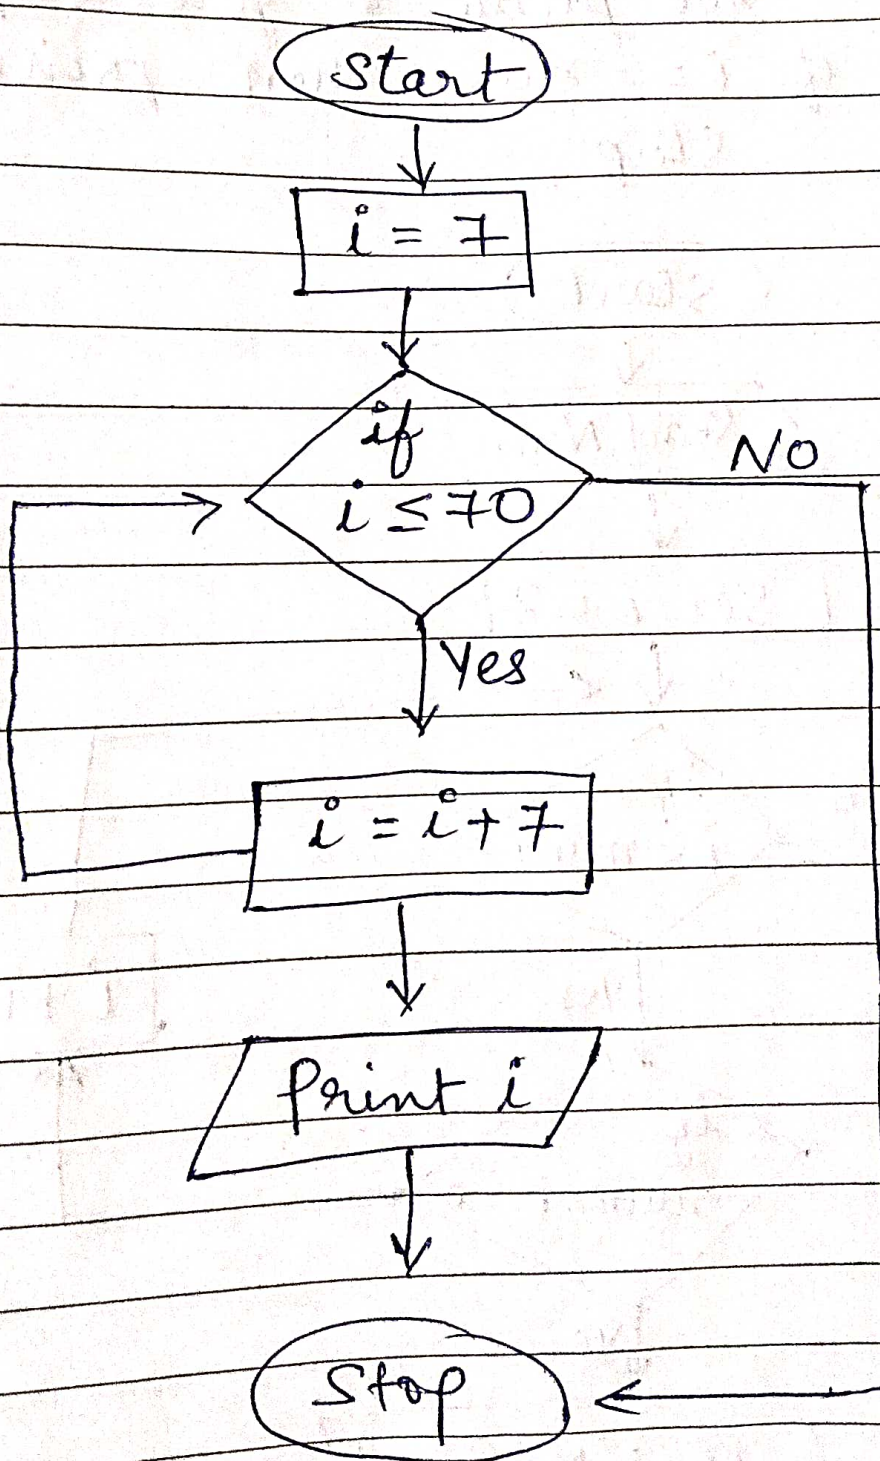 start
i = 7
if
i ≤ 70
NO
Yes
i = i + 7
Print i
Stop